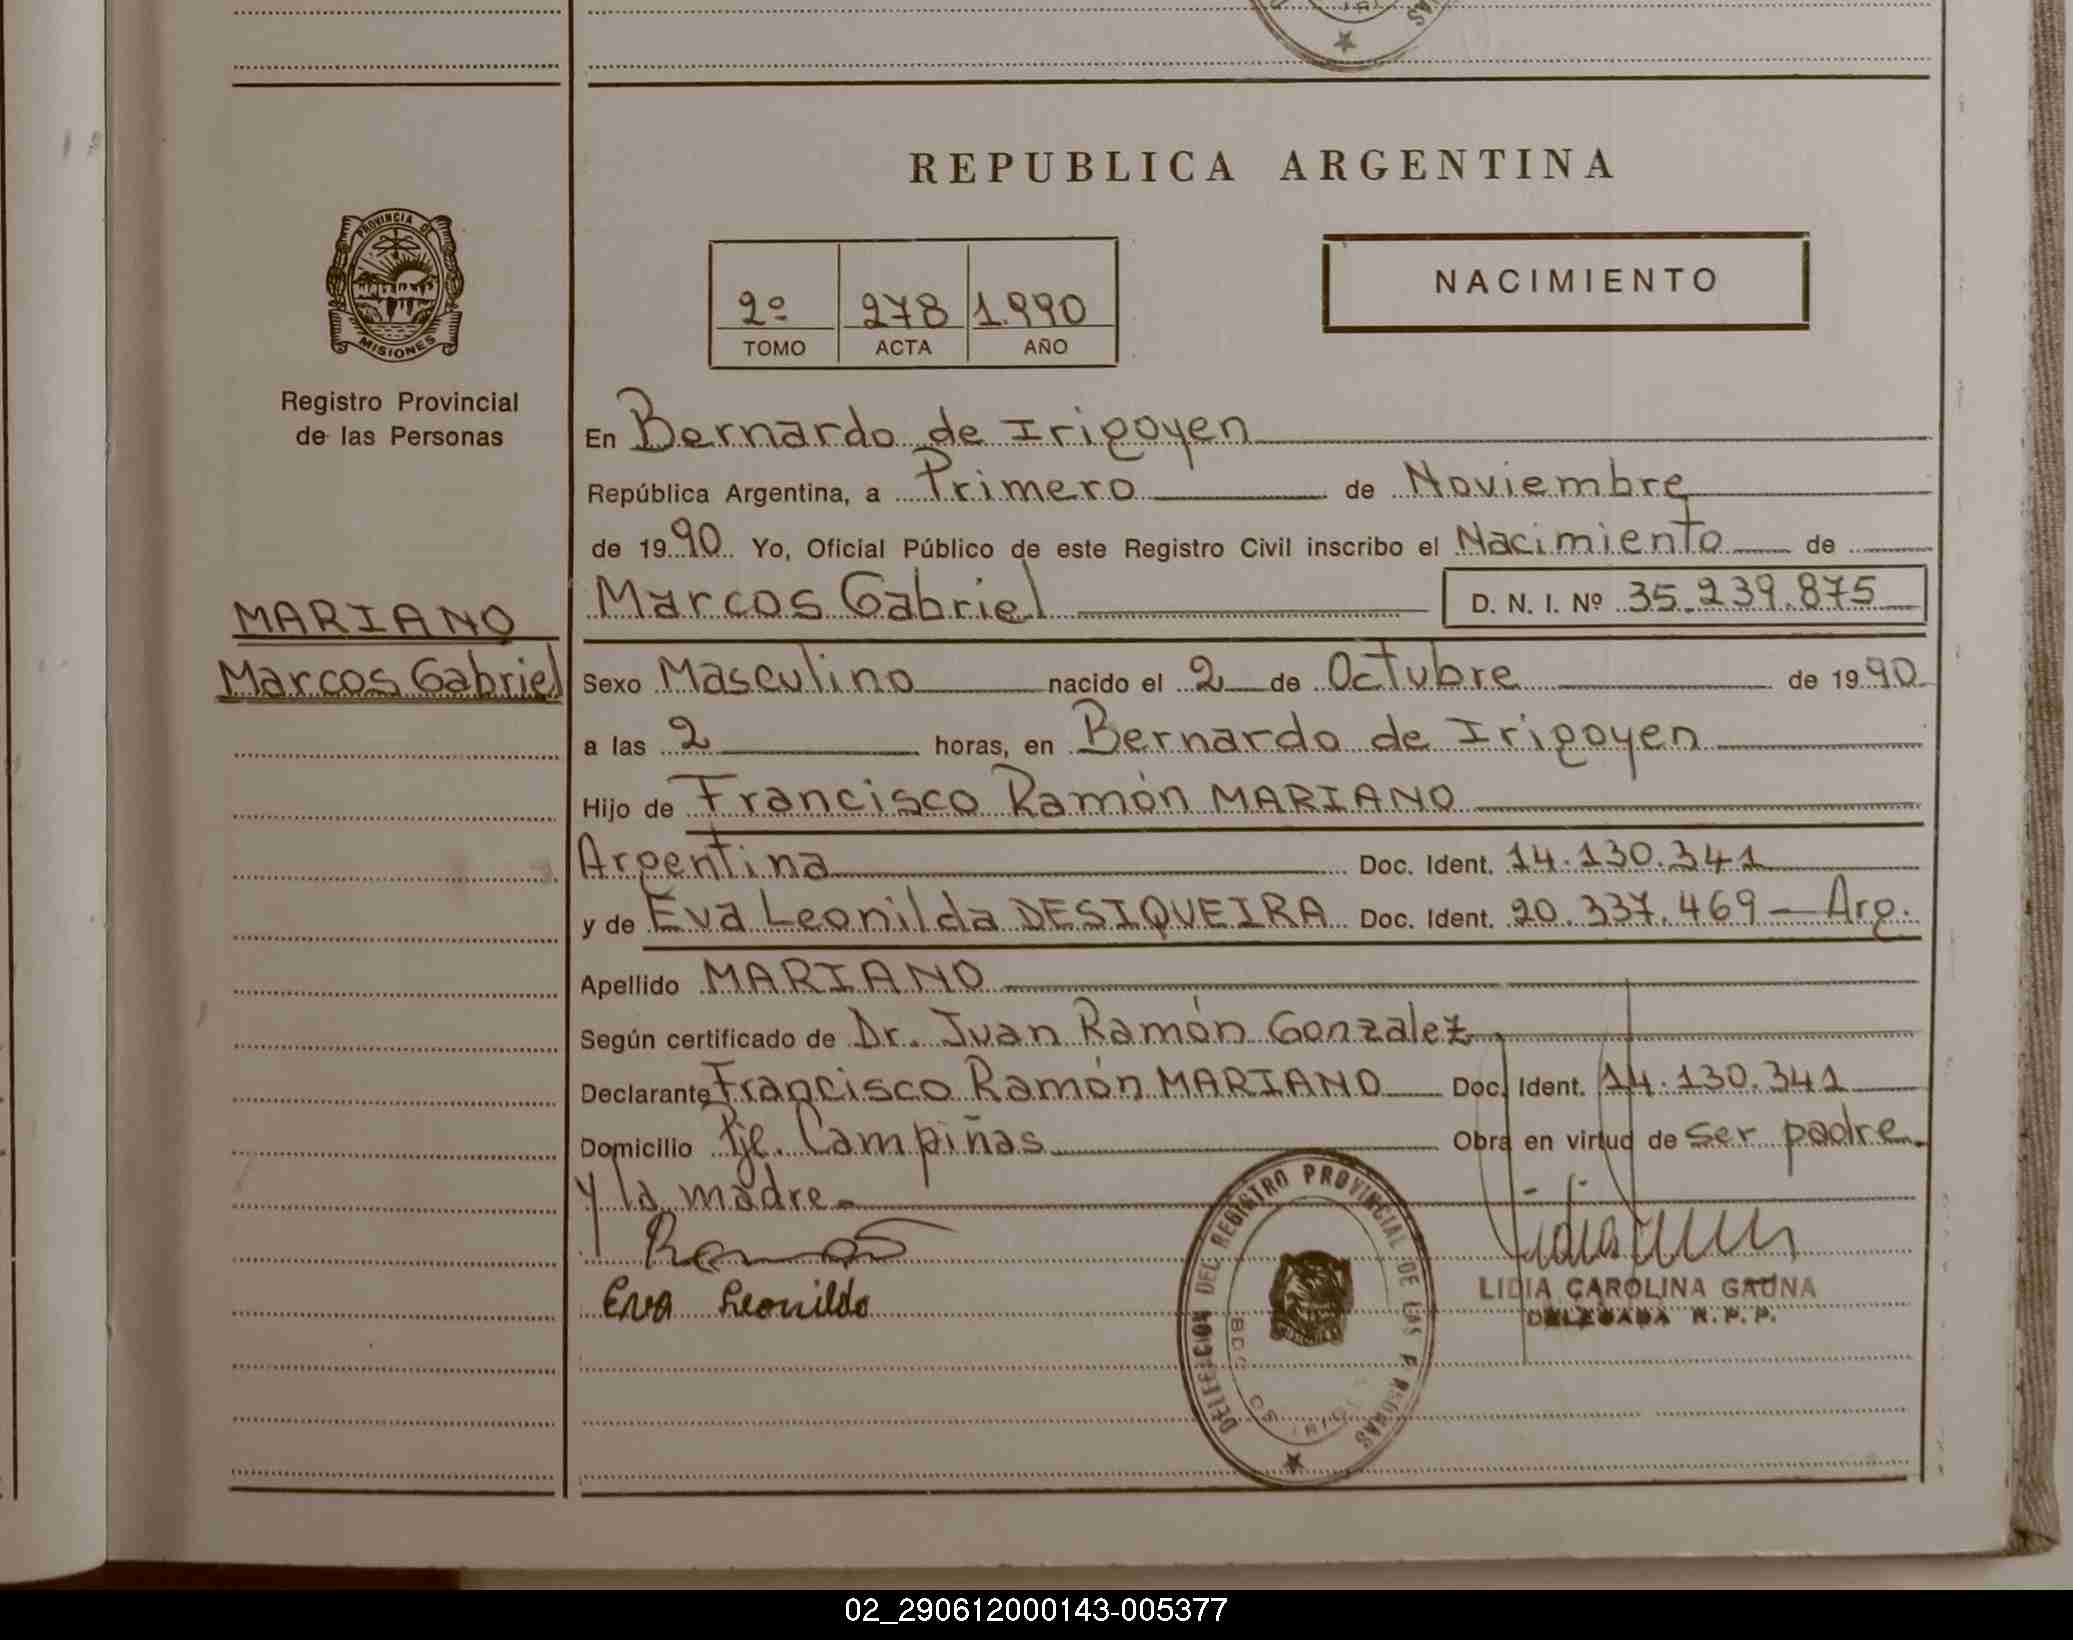 REPUBLICA ARGENTINA
PROVINCIA DE
MISIONES
Registro Provincial
de las Personas
2º 278 1.990
TOMO ACTA AÑO
NACIMIENTO
En Bernardo de Irigoyen
República Argentina, a Primero de Noviembre
de 1990 Yo, Oficial Público de este Registro Civil inscribo el Nacimiento de
Marcos Gabriel D. N. I. Nº 35.239.875
MARIANO
Marcos Gabriel
Sexo Masculino nacido el 2 de Octubre de 1990
a las 2 horas, en Bernardo de Irigoyen
Hijo de Francisco Ramón MARIANO
Argentina Doc. Ident. 14.130.341
y de Eva Leonilda DESIQUEIRA Doc. Ident. 20.337.469 - Arg.
Apellido MARIANO
Según certificado de Dr. Juan Ramón Gonzalez
Declarante Francisco Ramón MARIANO Doc. Ident. 14.130.341
Domicilio Pje. Campiñas Obra en virtud de ser padre
y la madre.
Eva Leonilda
DELEGACION DEL REGISTRO PROVINCIAL DE LAS PERSONAS
LIDIA CAROLINA GAUNA
DELEGADA R.P.P.
02_290612000143-005377